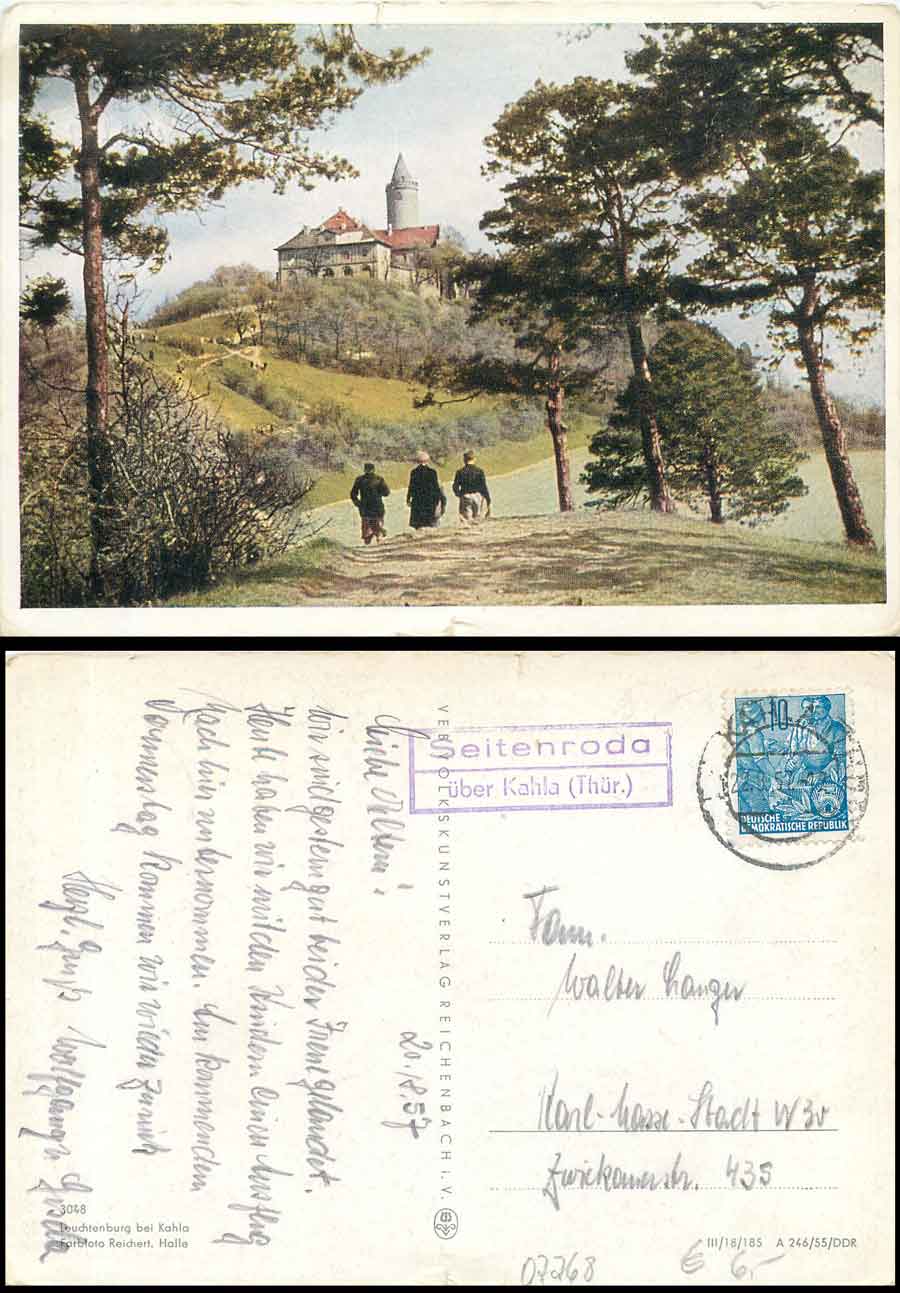 Seitenroda
über Kahla (Thür.)
10
DEUTSCHE
DEMOKRATISCHE REPUBLIK
VEB VOLKSKUNSTVERLAG REICHENBACH i. V.
20.8.57
Liebe Eltern!
Wir sind gestern gut bei der Irene gelandet.
Heute haben wir mit den Kindern einen Ausflug
nach hier unternommen. Am kommenden
Donnerstag kommen wir wieder zurück
Herzl. Grüß Wolfgang
Fam.
Walter Langer
Karl-Marx-Stadt W 30
Zwickauerstr. 435
3048
Leuchtenburg bei Kahla
Farbfoto Reichert, Halle
III/18/185 A 246/55/DDR
07768 € 6,-